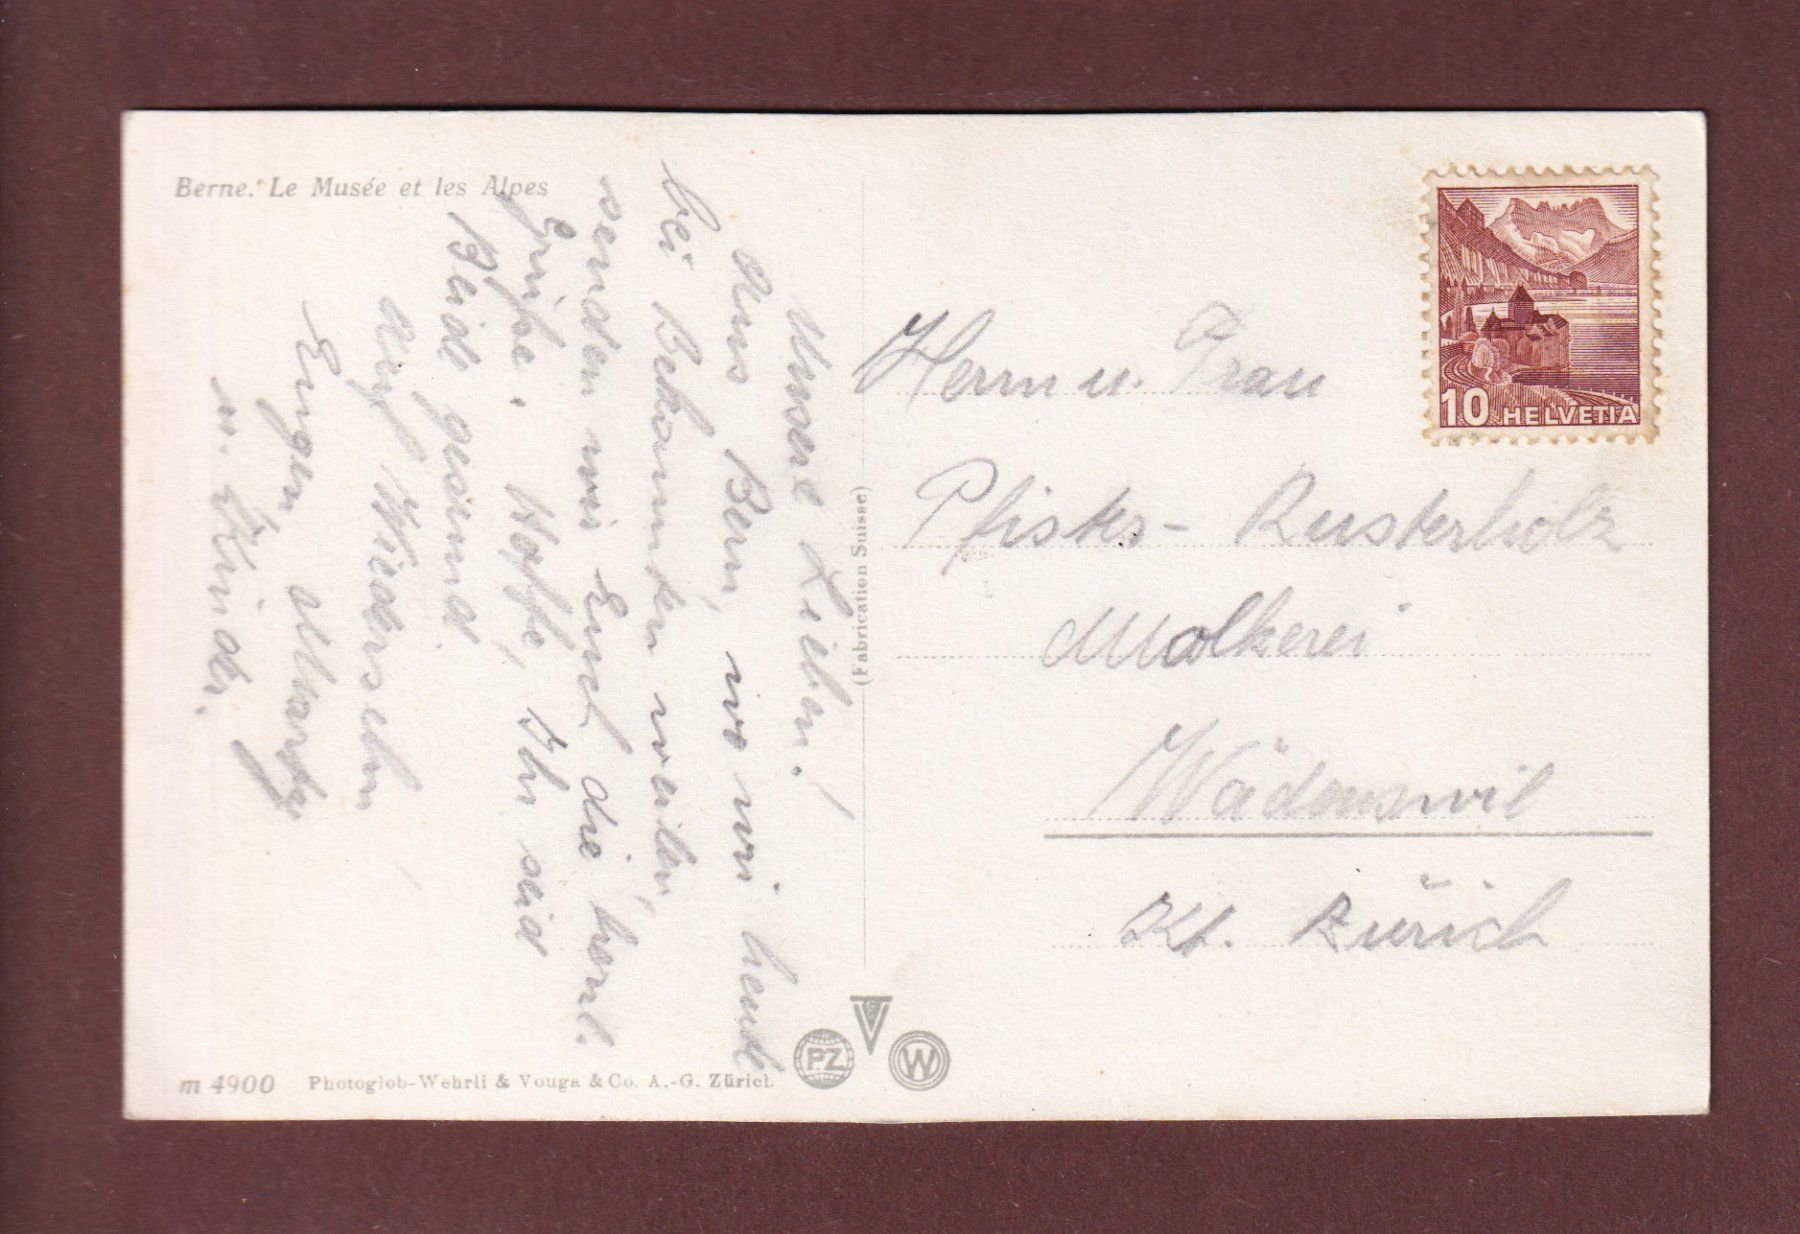 Berne. Le Musée et les Alpes
Unsere Lieben!
Aus Bern, wo wir heute
bei Bekannten weilen,
senden wir Euch die herzl.
Grüße. Hoffe, Ihr seid
Beide gesund.
Auf Wiedersehn
Eugen
u. Kinder.
(Fabrication Suisse)
Herrn u. Frau
Pfister - Rusterholz
Molkerei
Wädenswil
Kt. Zürich
10 HELVETIA
PZ
W
m 4900 Photoglob-Wehrli & Vouga & Co. A.-G. Zürich